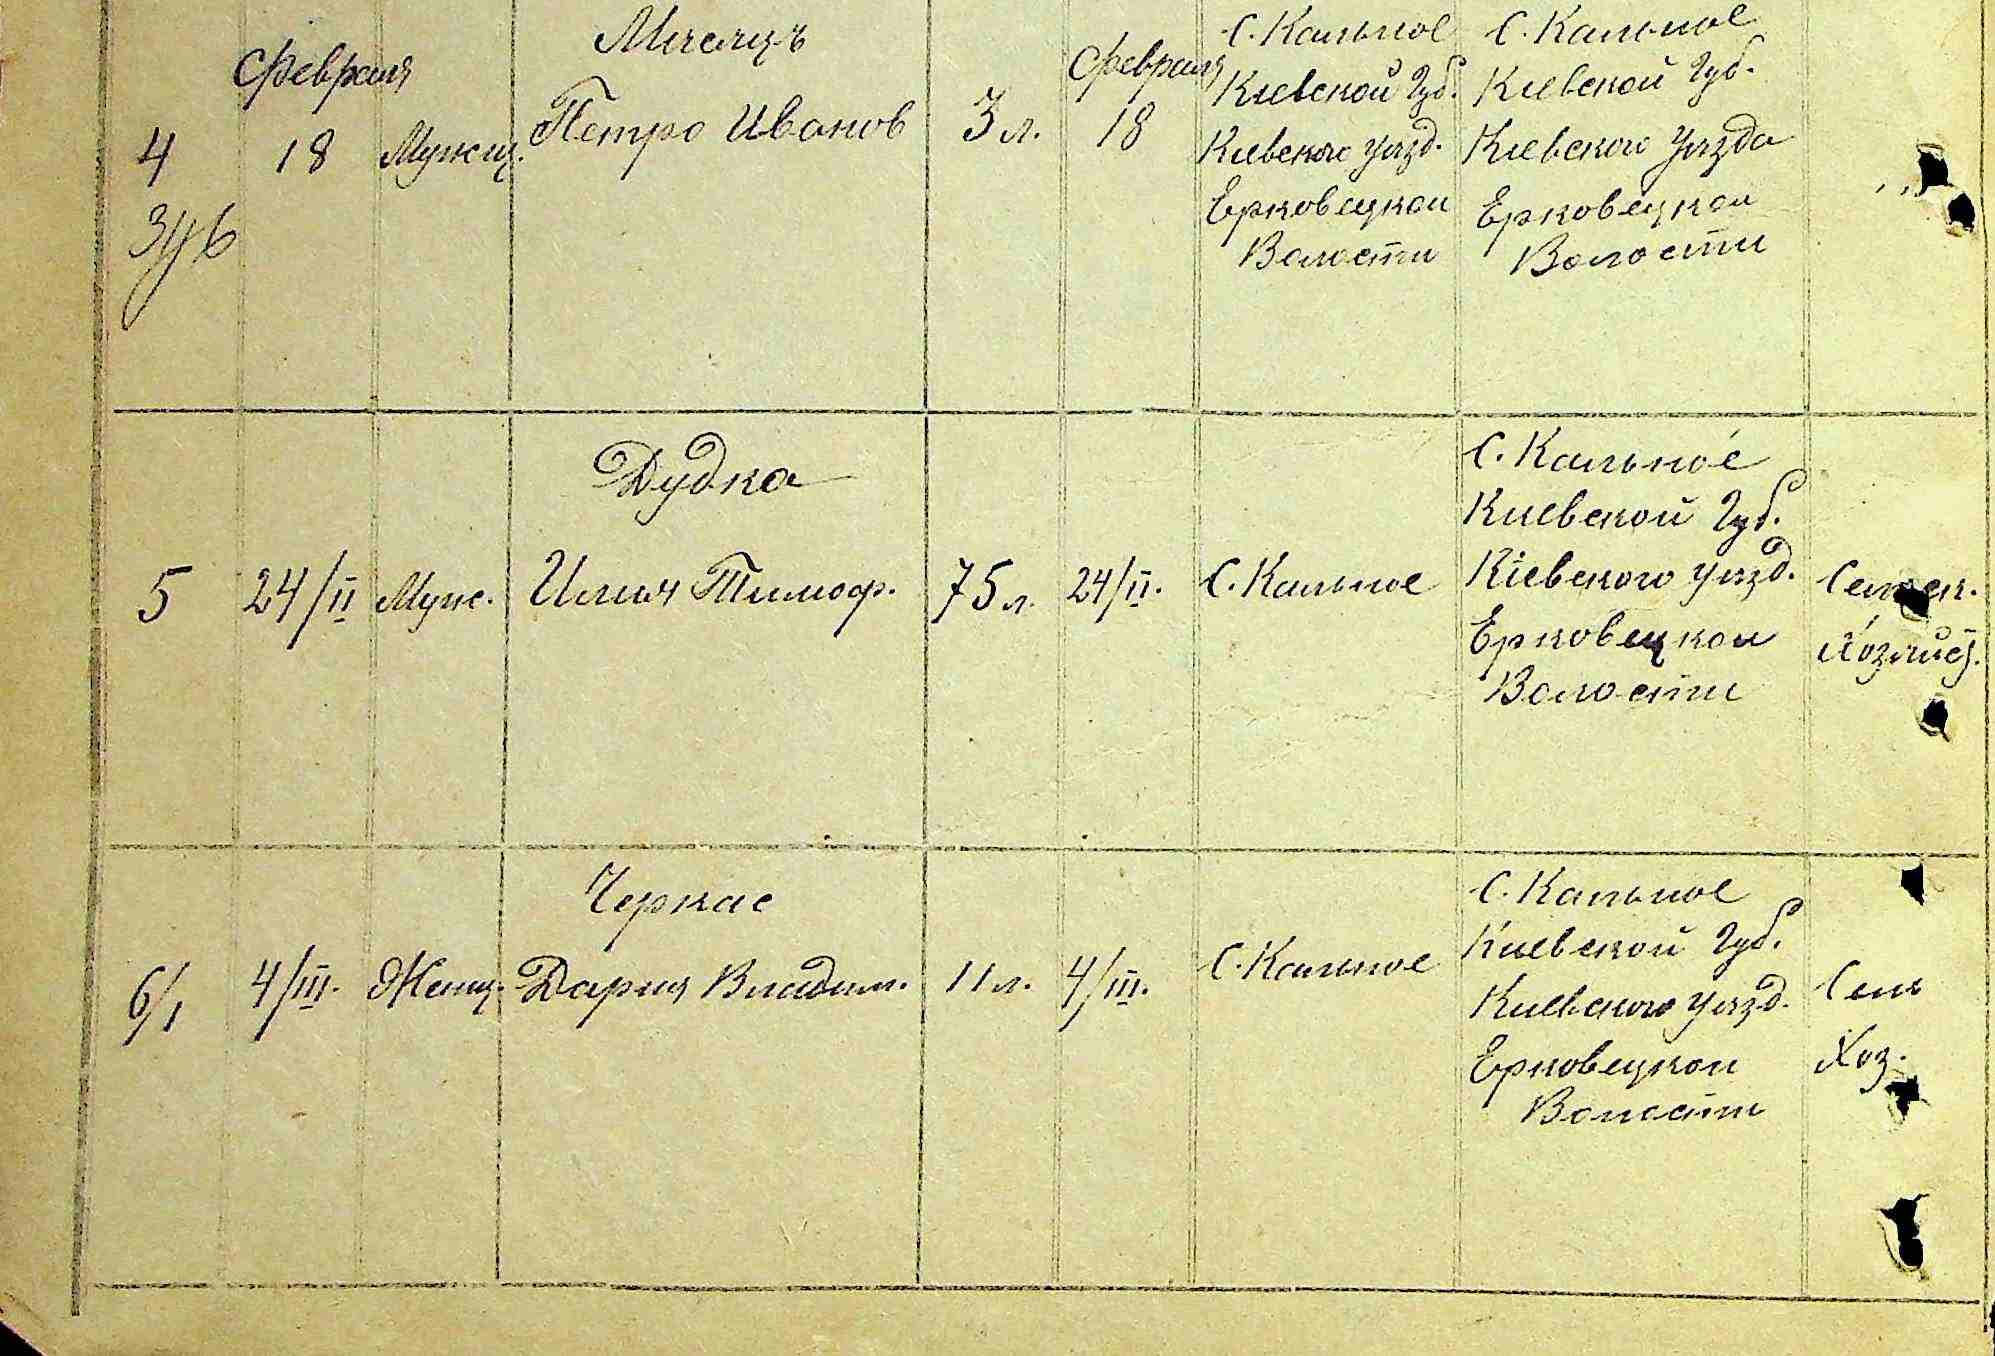 4
З/у б
Февраля
18
Мужщ.
Мисляцъ
Петро Иванов
3 л.
Февраля
18
С. Кальное
Киевской Губ.
Киевского уязд.
Ерковецкои
Волости
С. Кальное
Киевской Губ.
Киевского Уязда
Ерковецкои
Волости
5
24/II
Мужс.
Дудка
Илия Тимоф.
75 л.
24/II.
С. Кальное
С. Кальное
Киевской Губ.
Кіевского уязд.
Ерковецкои
Волости
Хозяйс.
6/1
4/III.
Женщ.
Черкас
Дария Владим.
11 л.
4/III.
С. Кальное
С. Кальное
Киевской Губ.
Киевского уязд.
Ерковецкои
Волости
Сель
Хоз.